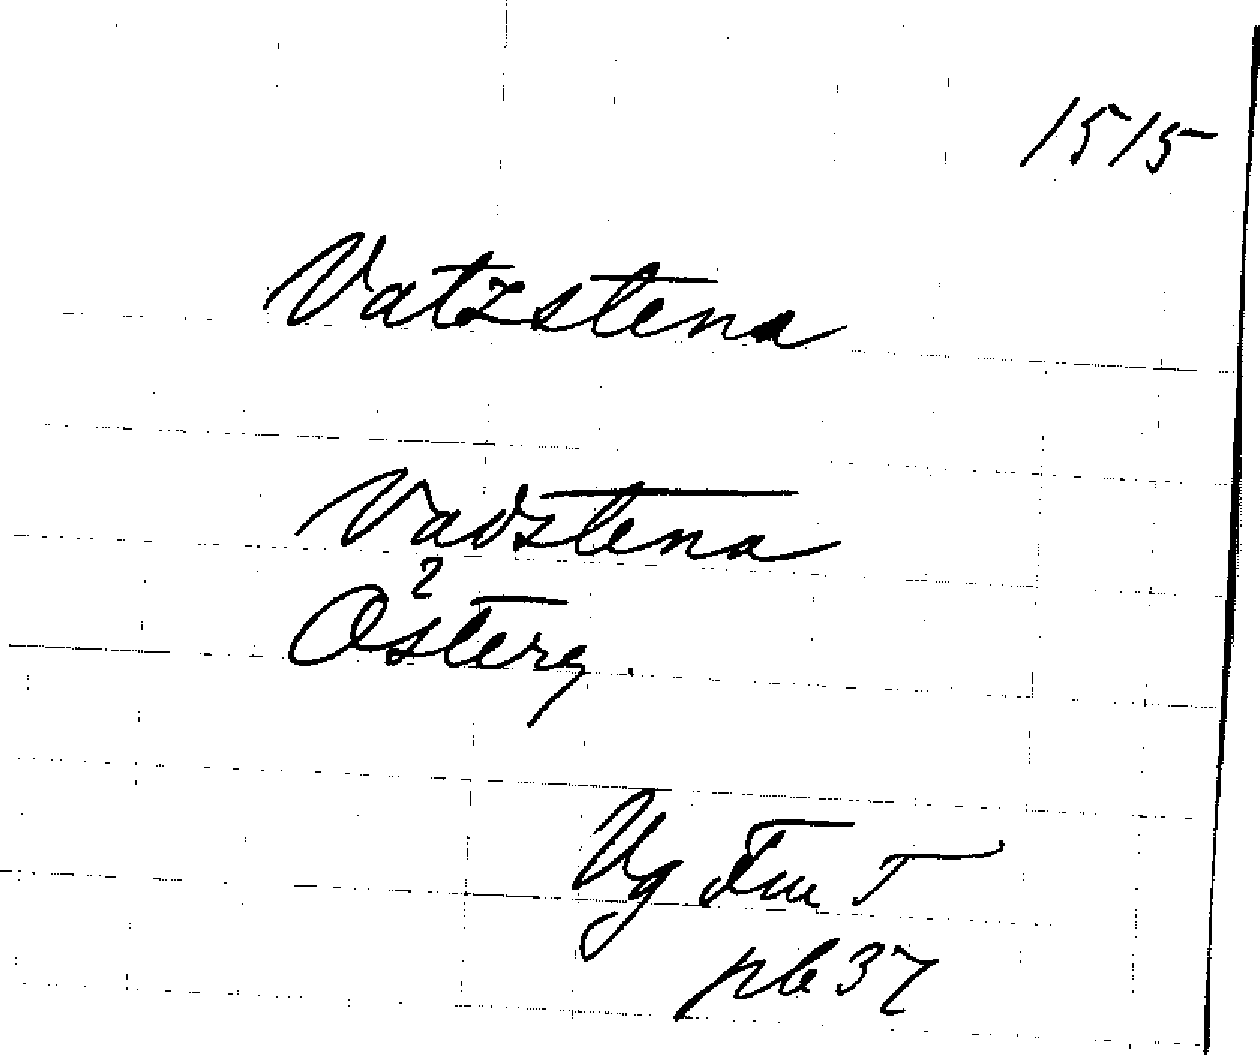 1515
Vatzstena
Vadstena
2
Österg.
Vg Fm T
pb 37